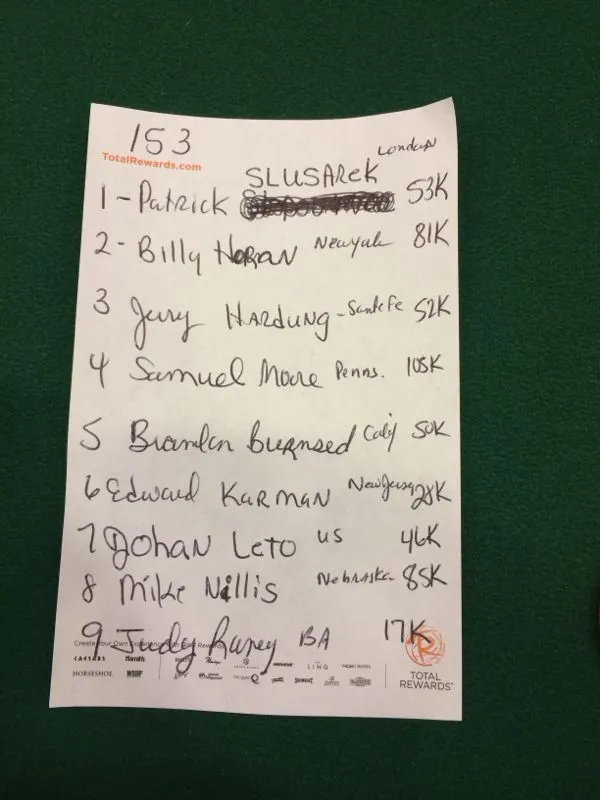 153
London
TotalRewards.com
SLUSAREK
1 - Patrick 53K
2 - Billy Horan New York 81K
3 Jerry HARDUNG - Santa Fe 52K
4 Samuel Moore Penns. 105K
5 Brandon Burnsed Calif 50K
6 Edward KARMAN New Jersey 28K
7 Johan Leto US 46K
8 Mike Nillis Nebraska 85K
Create Your Own Experience with Total Rewards
9 Judy Raney BA 17K
CAESARS Harrah's
HORSESHOE WSOP
LINQ
TOTAL
REWARDS